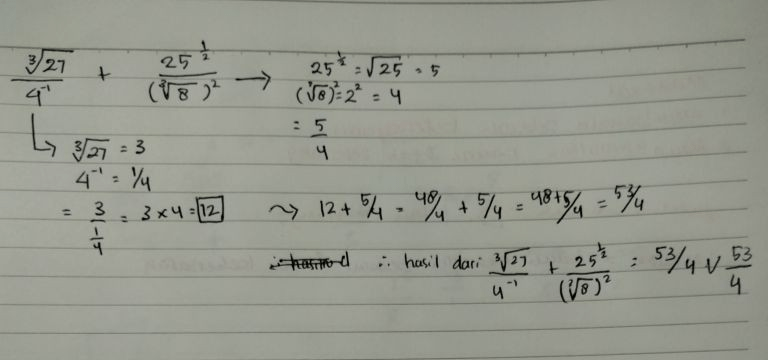 ∛27 / 4⁻¹ + 25^½ / (∛8)² → 25^½ = √25 = 5
(∛8)² = 2² = 4
= 5/4
↳ ∛27 = 3
4⁻¹ = 1/4
= 3 / (1/4) = 3 x 4 = 12 ⤳ 12 + 5/4 = 48/4 + 5/4 = 48+5/4 = 53/4
∴ hasil dari ∛27 / 4⁻¹ + 25^½ / (∛8)² = 53/4 V 53/4